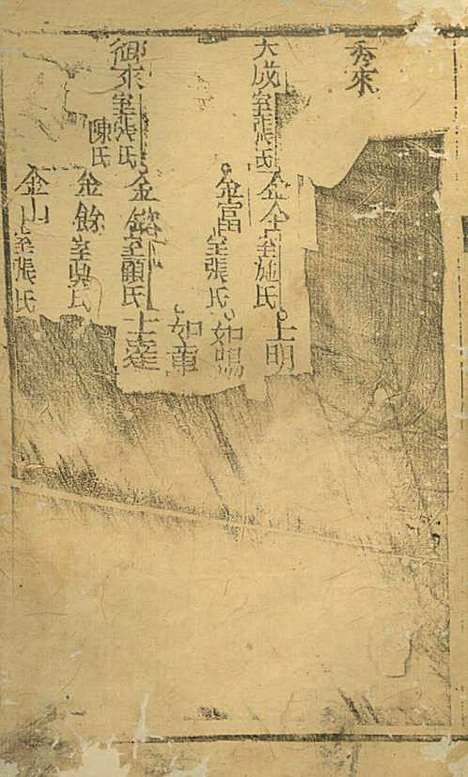 秀來
大成室張氏金全室施氏上明
金富室張氏如
如華
御來室張氏金室顧氏士達
陳氏
金餘室吳氏
金山室張氏